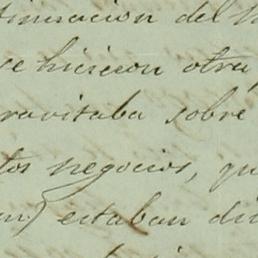 timacion del
se hicieron otra
ravitaba sobre
tos negocios, qu
estaban di